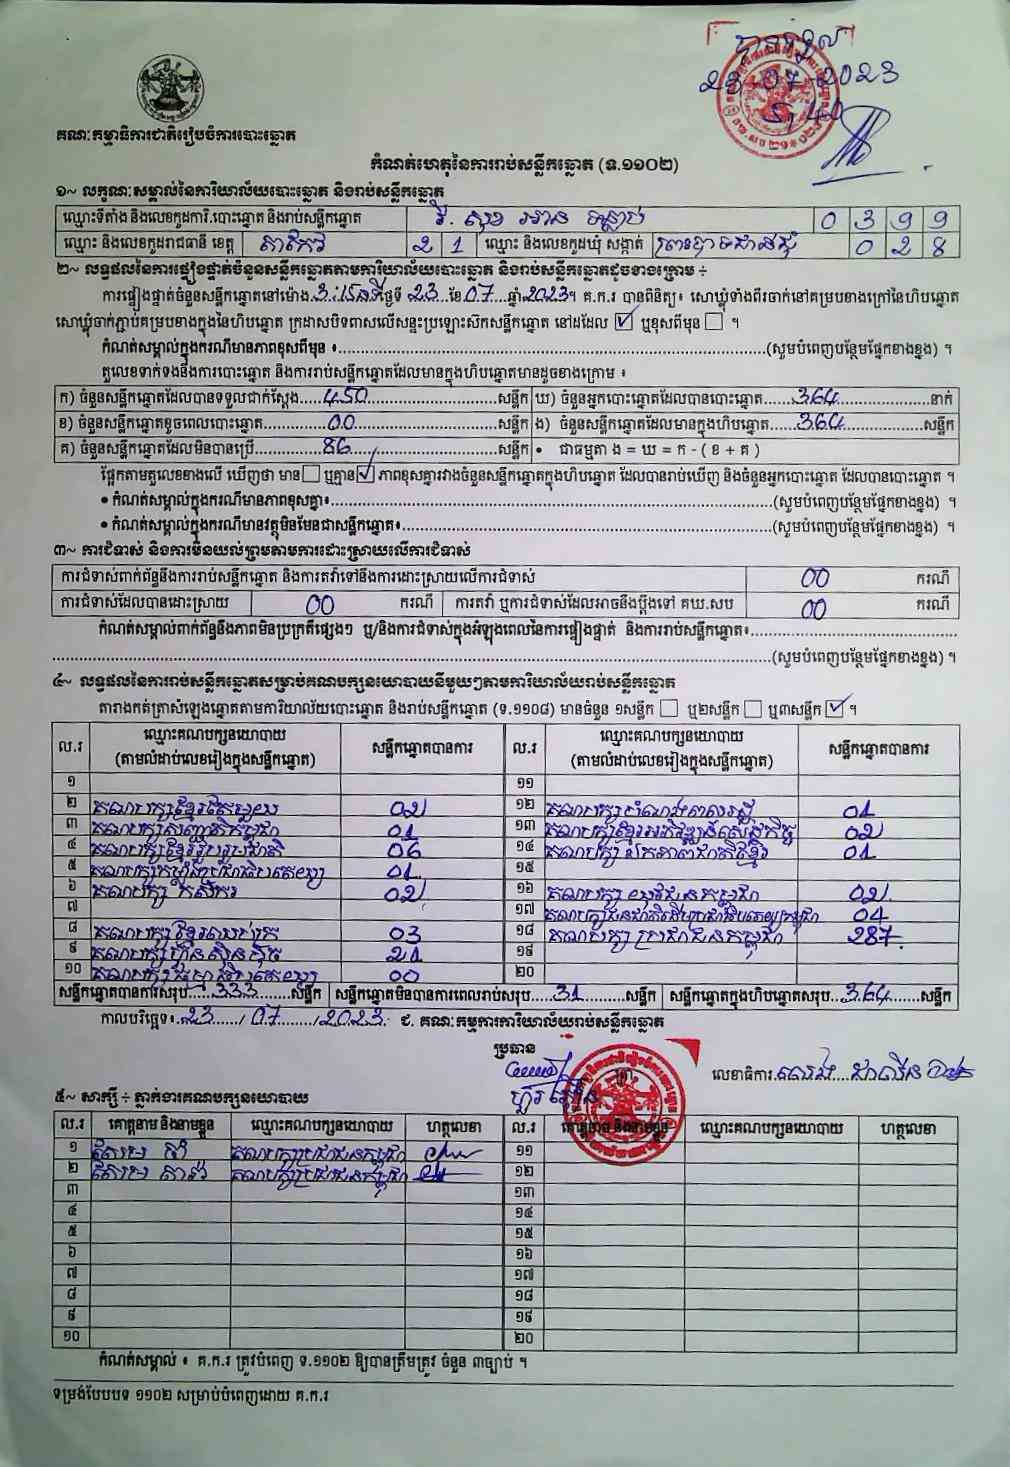 23-07-2023
គណៈកម្មាធិការជាតិរៀបចំការបោះឆ្នោត
កំណត់ហេតុនៃការរាប់សន្លឹកឆ្នោត (ទ.១១០២)
១~ លក្ខណៈសម្គាល់នៃការិយាល័យបោះឆ្នោត និងរាប់សន្លឹកឆ្នោត
ឈ្មោះទីតាំង និងលេខកូដការិ.បោះឆ្នោត និងរាប់សន្លឹកឆ្នោត វិ. សុខ អាន 0 3 9 9
ឈ្មោះ និងលេខកូដរាជធានី ខេត្ត តាកែវ 2 1 ឈ្មោះ និងលេខកូដឃុំ សង្កាត់ ព្រះបាទជាន់ជុំ 0 2 8
២~ លទ្ធផលនៃការផ្ទៀងផ្ទាត់ចំនួនសន្លឹកឆ្នោតតាមការិយាល័យបោះឆ្នោត និងរាប់សន្លឹកឆ្នោតដូចខាងក្រោម ÷
ការផ្ទៀងផ្ទាត់ចំនួនសន្លឹកឆ្នោតនៅម៉ោង 3:15នាទី ថ្ងៃទី 23 ខែ 07 ឆ្នាំ 2023។ គ.ក.រ បានពិនិត្យ៖ សោឃ្លុំទាំងពីរចាក់នៅគម្របខាងក្រៅនៃហិបឆ្នោត
សោឃ្លុំចាក់ភ្ជាប់គម្របខាងក្នុងនៃហិបឆ្នោត ក្រដាសបិទពាសលើសន្ទះប្រឡោះស៊កសន្លឹកឆ្នោត នៅដដែល ☑ ឬខុសពីមុន ☐ ។
កំណត់សម្គាល់ក្នុងករណីមានភាពខុសពីមុន ៖........(សូមបំពេញបន្ថែមផ្នែកខាងខ្នង) ។
តួលេខទាក់ទងនឹងការបោះឆ្នោត និងការរាប់សន្លឹកឆ្នោតដែលមានក្នុងហិបឆ្នោតមានដូចខាងក្រោម ៖
ក) ចំនួនសន្លឹកឆ្នោតដែលបានទទួលជាក់ស្តែង.....450.....សន្លឹក ឃ) ចំនួនអ្នកបោះឆ្នោតដែលបានបោះឆ្នោត.....364.....នាក់
ខ) ចំនួនសន្លឹកឆ្នោតខូចពេលបោះឆ្នោត.....00.....សន្លឹក ង) ចំនួនសន្លឹកឆ្នោតដែលមានក្នុងហិបឆ្នោត.....364.....សន្លឹក
គ) ចំនួនសន្លឹកឆ្នោតដែលមិនបានប្រើ.....86.....សន្លឹក • ជាធម្មតា ង = ឃ = ក - ( ខ + គ )
ផ្អែកតាមតួលេខខាងលើ ឃើញថា មាន ☐ ឬគ្មាន ☑ ភាពខុសគ្នារវាងចំនួនសន្លឹកឆ្នោតក្នុងហិបឆ្នោត ដែលបានរាប់ឃើញ និងចំនួនអ្នកបោះឆ្នោត ដែលបានបោះឆ្នោត ។
• កំណត់សម្គាល់ក្នុងករណីមានភាពខុសគ្នា៖........(សូមបំពេញបន្ថែមផ្នែកខាងខ្នង) ។
• កំណត់សម្គាល់ក្នុងករណីមានវត្ថុមិនមែនជាសន្លឹកឆ្នោត៖........(សូមបំពេញបន្ថែមផ្នែកខាងខ្នង) ។
៣~ ការជំទាស់ និងការមិនយល់ព្រមតាមការដោះស្រាយលើការជំទាស់
ការជំទាស់ពាក់ព័ន្ធនឹងការរាប់សន្លឹកឆ្នោត និងការតវ៉ាទៅនឹងការដោះស្រាយលើការជំទាស់ 00 ករណី
ការជំទាស់ដែលបានដោះស្រាយ 00 ករណី ការតវ៉ា ឬការជំទាស់ដែលអាចនឹងប្តឹងទៅ គឃ.សប 00 ករណី
កំណត់សម្គាល់ពាក់ព័ន្ធនឹងភាពមិនប្រក្រតីផ្សេងៗ ឬ/និងការជំទាស់ក្នុងអំឡុងពេលនៃការផ្ទៀងផ្ទាត់ និងការរាប់សន្លឹកឆ្នោត៖........
........(សូមបំពេញបន្ថែមផ្នែកខាងខ្នង) ។
៤~ លទ្ធផលនៃការរាប់សន្លឹកឆ្នោតសម្រាប់គណបក្សនយោបាយនីមួយៗតាមការិយាល័យរាប់សន្លឹកឆ្នោត
តារាងកត់ត្រាសំឡេងឆ្នោតតាមការិយាល័យបោះឆ្នោត និងរាប់សន្លឹកឆ្នោត (ទ.១១០៨) មានចំនួន ១សន្លឹក ☐ ឬ២សន្លឹក ☐ ឬ៣សន្លឹក ☑ ។
ល.រ ឈ្មោះគណបក្សនយោបាយ (តាមលំដាប់លេខរៀងក្នុងសន្លឹកឆ្នោត) សន្លឹកឆ្នោតបានការ ល.រ ឈ្មោះគណបក្សនយោបាយ (តាមលំដាប់លេខរៀងក្នុងសន្លឹកឆ្នោត) សន្លឹកឆ្នោតបានការ
១ ១១
២ គណបក្សខ្មែរតែមួយ 02 ១២ គណបក្សសំណង់ 01
៣ គណបក្សសញ្ជាតិកម្ពុជា 01 ១៣ គណបក្សខ្មែរអភិវឌ្ឍន៍សេដ្ឋកិច្ច 02
៤ គណបក្សខ្មែររួបរួមជាតិ 06 ១៤ គណបក្ស ឯកភាពជាតិខ្មែរ 01
៥ គណបក្សកម្លាំងប្រជាធិបតេយ្យ 01 ១៥
៦ គណបក្ស កសិករ 02 ១៦ គណបក្ស យុវជនកម្ពុជា 02
៧ ១៧ គណបក្សជនជាតិដើមប្រជាធិបតេយ្យកម្ពុជា 04
៨ គណបក្សខ្មែរឈប់ក្រ 03 ១៨ គណបក្ស ប្រជាជនកម្ពុជា 287
៩ គណបក្សហ្វ៊ុនស៊ិនប៉ិច 21 ១៩
១០ គណបក្សធម្មាធិបតេយ្យ 00 ២០
សន្លឹកឆ្នោតបានការសរុប.....333.....សន្លឹក សន្លឹកឆ្នោតមិនបានការពេលរាប់សរុប.....31.....សន្លឹក សន្លឹកឆ្នោតក្នុងហិបឆ្នោតសរុប.....364.....សន្លឹក
កាលបរិច្ឆេទ៖ 23 / 07 / 2023 ជ. គណៈកម្មការការិយាល័យរាប់សន្លឹកឆ្នោត
ប្រធាន
លេខាធិការ
៥~ សាក្សី ÷ ភ្នាក់ងារគណបក្សនយោបាយ
ល.រ គោត្តនាម និងនាមខ្លួន ឈ្មោះគណបក្សនយោបាយ ហត្ថលេខា ល.រ គោត្តនាម និងនាមខ្លួន ឈ្មោះគណបក្សនយោបាយ ហត្ថលេខា
១ គណបក្សប្រជាជនកម្ពុជា ១១
២ គណបក្សប្រជាជនកម្ពុជា ១២
៣ ១៣
៤ ១៤
៥ ១៥
៦ ១៦
៧ ១៧
៨ ១៨
៩ ១៩
១០ ២០
កំណត់សម្គាល់ ៖ គ.ក.រ ត្រូវបំពេញ ទ.១១០២ ឱ្យបានត្រឹមត្រូវ ចំនួន ៣ច្បាប់ ។
ទម្រង់បែបបទ ១១០២ សម្រាប់បំពេញដោយ គ.ក.រ